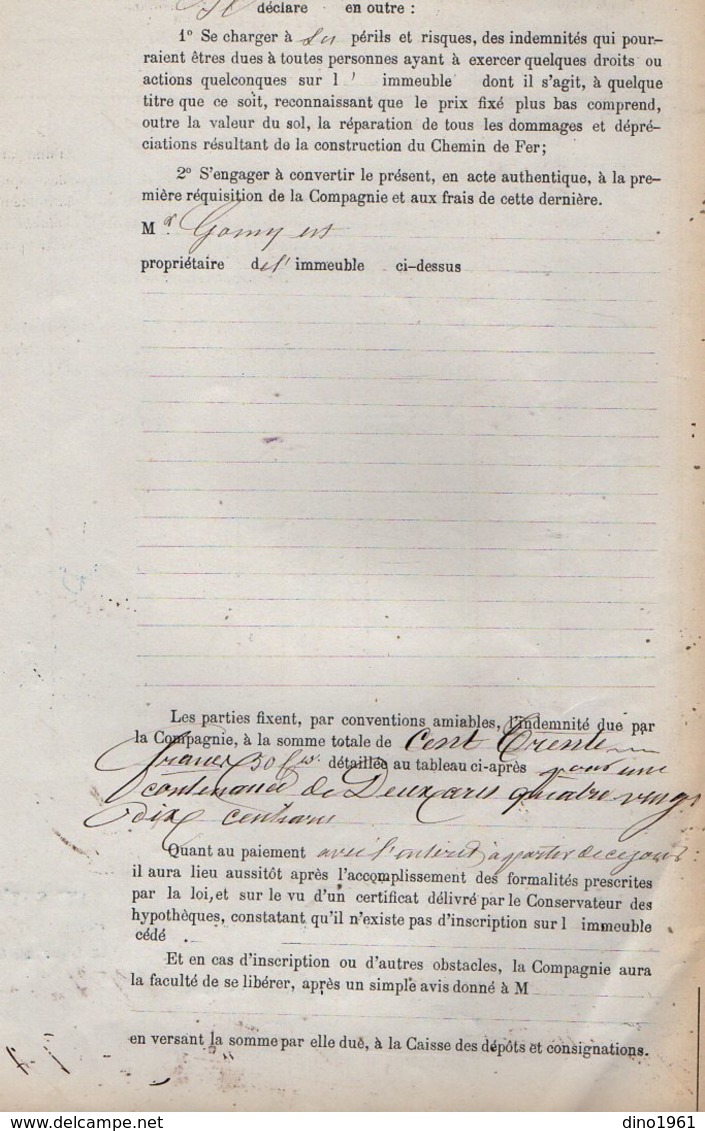 déclare en outre :
1° Se charger à ses périls et risques, des indemnités qui pour-
raient êtres dues à toutes personnes ayant à exercer quelques droits ou
actions quelconques sur l ' immeuble dont il s'agit, à quelque
titre que ce soit, reconnaissant que le prix fixé plus bas comprend,
outre la valeur du sol, la réparation de tous les dommages et dépré-
ciations résultant de la construction du Chemin de Fer;
2° S'engager à convertir le présent, en acte authentique, à la pre-
mière réquisition de la Compagnie et aux frais de cette dernière.
Mr Gomy est
propriétaire de l' immeuble ci-dessus
Les parties fixent, par conventions amiables, l'indemnité due par
la Compagnie, à la somme totale de Cent Trente
francs 50 détaillée au tableau ci-après pour une
contenance de Deux ares quatre vingt
dix centiares
Quant au paiement avec l'intérêt à partir de ce jour :
il aura lieu aussitôt après l'accomplissement des formalités prescrites
par la loi, et sur le vu d'un certificat délivré par le Conservateur des
hypothèques, constatant qu'il n'existe pas d'inscription sur l immeuble
cédé
Et en cas d'inscription ou d'autres obstacles, la Compagnie aura
la faculté de se libérer, après un simple avis donné à M
en versant la somme par elle due, à la Caisse des dépôts et consignations.
www.delcampe.net
dino1961